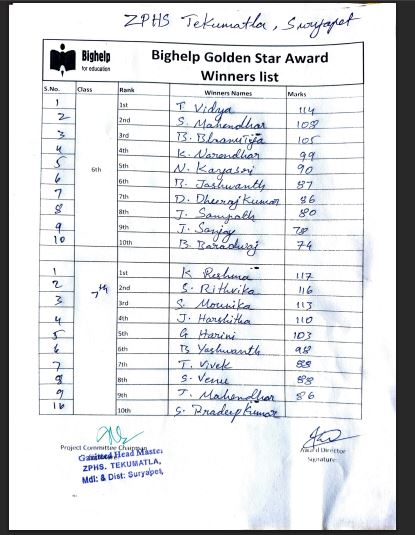 ZPHS Tekumatla, Suryapet
Bighelp
for education
Bighelp Golden Star Award
Winners list
S.No. Class Rank Winners Names Marks
1 1st T Vidya 114
2 2nd S. Mahendhar 108
3 3rd B. 105
4 4th K. Narendhar 99
5 6th 5th N. Kayasri 90
6 6th B. Jashwanth 87
7 7th D. Dheeraj Kumar 86
8 8th J. Sampath 80
9 9th J. Sanjay
10 10th B. Baradwaj 74
1 1st K Reshma 117
2 7th 2nd S. Rithvika 116
3 3rd S. Mounika 113
4 4th J. Harshitha 110
5 5th G Harini 103
6 6th B Yashwanth 98
7 7th T. Vivek 88
8 8th S. Venu 88
9 9th T. Mahendhar 86
10 10th S. Pradeep Kumar
Project Committee Chairman
Award Director
Gazetted Head Master
Signature
ZPHS. TEKUMATLA,
Mdl: & Dist: Suryapet,